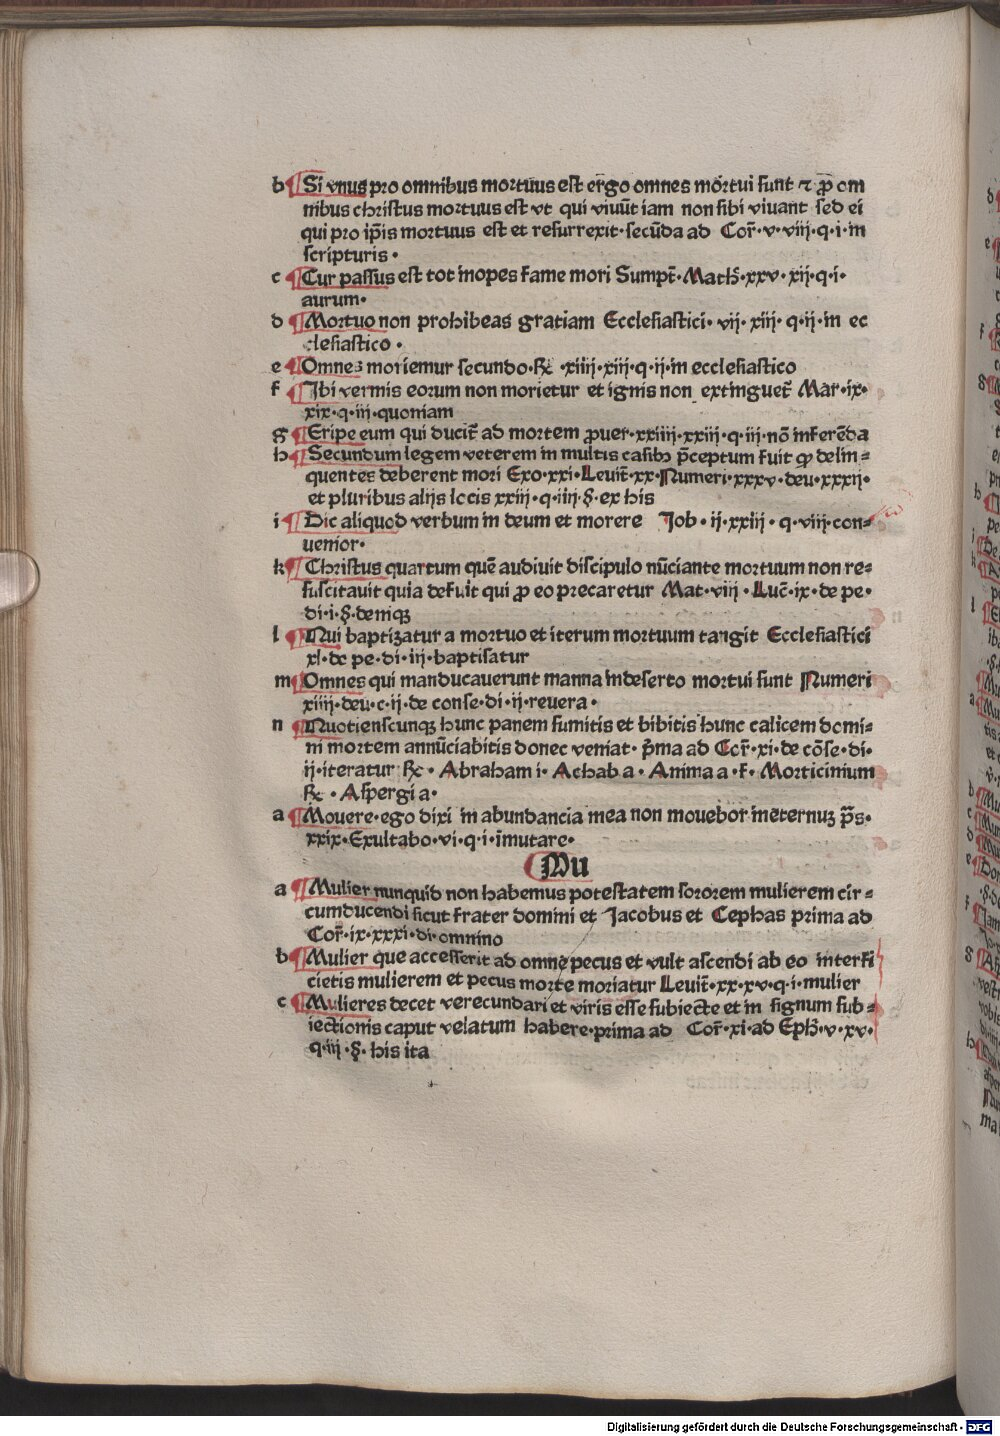 b ¶Si vnus pro omnibus mortuus est ergo omnes mortui sunt ⁊ p̄ om
nibus christus mortuus est vt qui viuūt iam non sibi viuant sed ei
qui pro ip̄is mortuus est et resurrexit·secūda ad Cor̄·v·viij·q·i·in
scripturis·
c ¶Cur passus est tot inopes fame mori Sumpt̄·Math̄·xxv·xij·q·i·
aurum·
d ¶Mortuo non prohibeas gratiam Ecclesiastici·vij·xiij·q·ij·in ec
clesiastico·
e ¶Omnes moriemur secundo·R̄c·xiiij·xiij·q·ij·in ecclesiastico
f ¶Ibi vermis eorum non morietur et ignis non extinguet̄ Mar·ix·
xix·q·iij·quoniam
g ¶Eripe eum qui ducit̄ ad mortem ꝓuer·xxiiij·xxiij·q·iij·nō inferēda
h ¶Secundum legem veterem in multis casibꝫ p̄ceptum fuit ꝙ delin⸗
quentes deberent mori Exo·xxi·Leuit̄·xx·Numeri·xxxv·deu·xxxij·
et pluribus alijs locis xxiij·q·iiij·§·ex his
i ¶Dic aliquod verbum in deum et morere Iob·ij·xxiij·q·viij·con⸗
uenior·
k ¶Christus quartum quē audiuit discipulo nūciante mortuum non re⸗
suscitauit quia defuit qui ꝓ eo precaretur Mat·viij·Luc̄·ix·de pe·
di·i·§·denique
l ¶Qui baptizatur a mortuo et iterum mortuum tangit Ecclesiastici
xl·de pe·di·iij·baptisatur
m ¶Omnes qui manducauerunt manna in deserto mortui sunt Numeri
xiiij·deu·c·ij·de conse·di·ij·reuera·
n ¶Quotienscunqꝫ hunc panem sumitis et bibitis hunc calicem domi⸗
ni mortem annūciabitis donec veniat·p̄ma ad Cor̄·xi·de cōse·di·
ij·iteratur R̄c·Abraham i·Achab a·Anima a·f·Morticinium
R̄c·Aspergi a·
a ¶Mouere·ego dixi in abundancia mea non mouebor ineternuꝫ p̄s·
xxix·Exultabo·vi·q·i·īmutare·
¶Mu
a ¶Mulier nunquid non habemus potestatem sororem mulierem cir⸗
cumducendi sicut frater domini et Iacobus et Cephas prima ad
Cor̄·ix·xxxi·di·omnino
b ¶Mulier que accesserit ad omne pecus et vult ascendi ab eo interfi
cietis mulierem et pecus morte moriatur Leuit̄·xx·xv·q·i·mulier
c ¶Mulieres decet verecundari et viris esse subiecte et in signum sub⸗
iectionis caput velatum habere·prima ad Cor̄·xi·ad Eph̄·v·xv·
q·iij·§·his ita
Digitalisierung gefördert durch die Deutsche Forschungsgemeinschaft · DFG